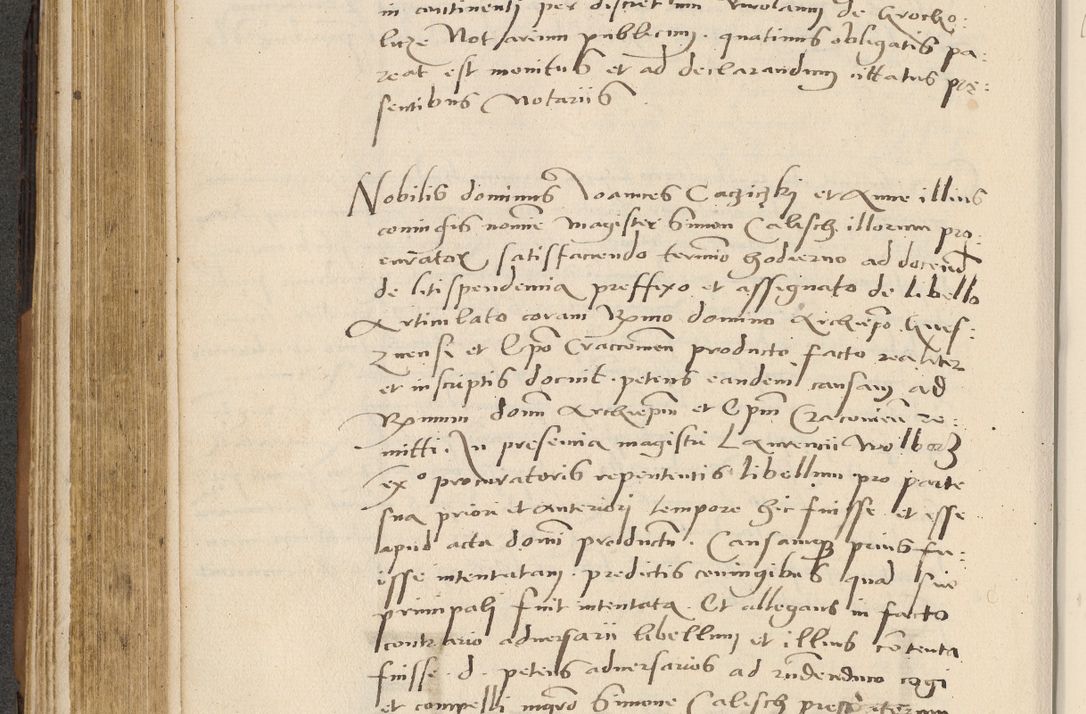 in continenti per discretum de Grocho:
licze Notarium publicum. quatinus obligatis pa:
reat est monitus et ad declarandum cittatus prę:
sentibus Notariis
Nobilis dominus Joannes Cacziczki et Anne illius
coniugis nomine magister Simon Calisch illorum pro:
curator satisfaciendo termino hodierno ad docend
de litispendencia preffixo et assignato de libello
Articulato coram Rmo domino Archiepo Gnes:
znensi et Epo Craccouien producto, facto realiter
et in scriptis docuit. petens eandem causam ad
Rmum domi Archiepm et Epm Cracouien re:
mitti. In presencia magistri Laurencii Wolborz
ex o procuratoris repetentis libellum pro parte
sua priori et Anteriori tempore hic fuisse et esse
apud acta domi productu. Causamque prius fu:
isse intentatam. predictis coniugibus quam sue
principali fuit intentata. Et allegans in facto
contrario adversarii libellum et illius cotenta
fuisse. d. petens adversarios ad rndendum cogi
et compelli mgro Simone Calisch